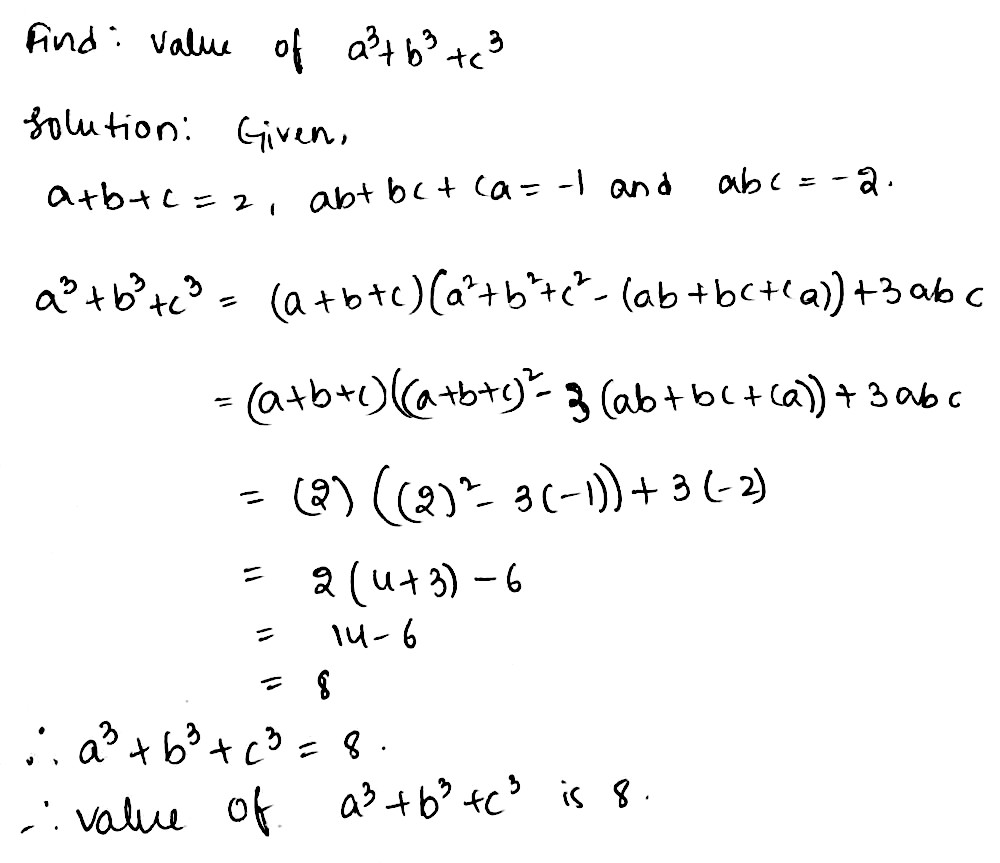 Find: value of a³+b³+c³
Solution: Given,
a+b+c = 2, ab+bc+ca = -1 and abc = -2.
a³+b³+c³ = (a+b+c)(a²+b²+c²-(ab+bc+ca))+3abc
= (a+b+c)((a+b+c)²-3(ab+bc+ca))+3abc
= (2)((2)²-3(-1))+3(-2)
= 2(4+3)-6
= 14-6
= 8
∴ a³+b³+c³ = 8.
∴ value of a³+b³+c³ is 8.